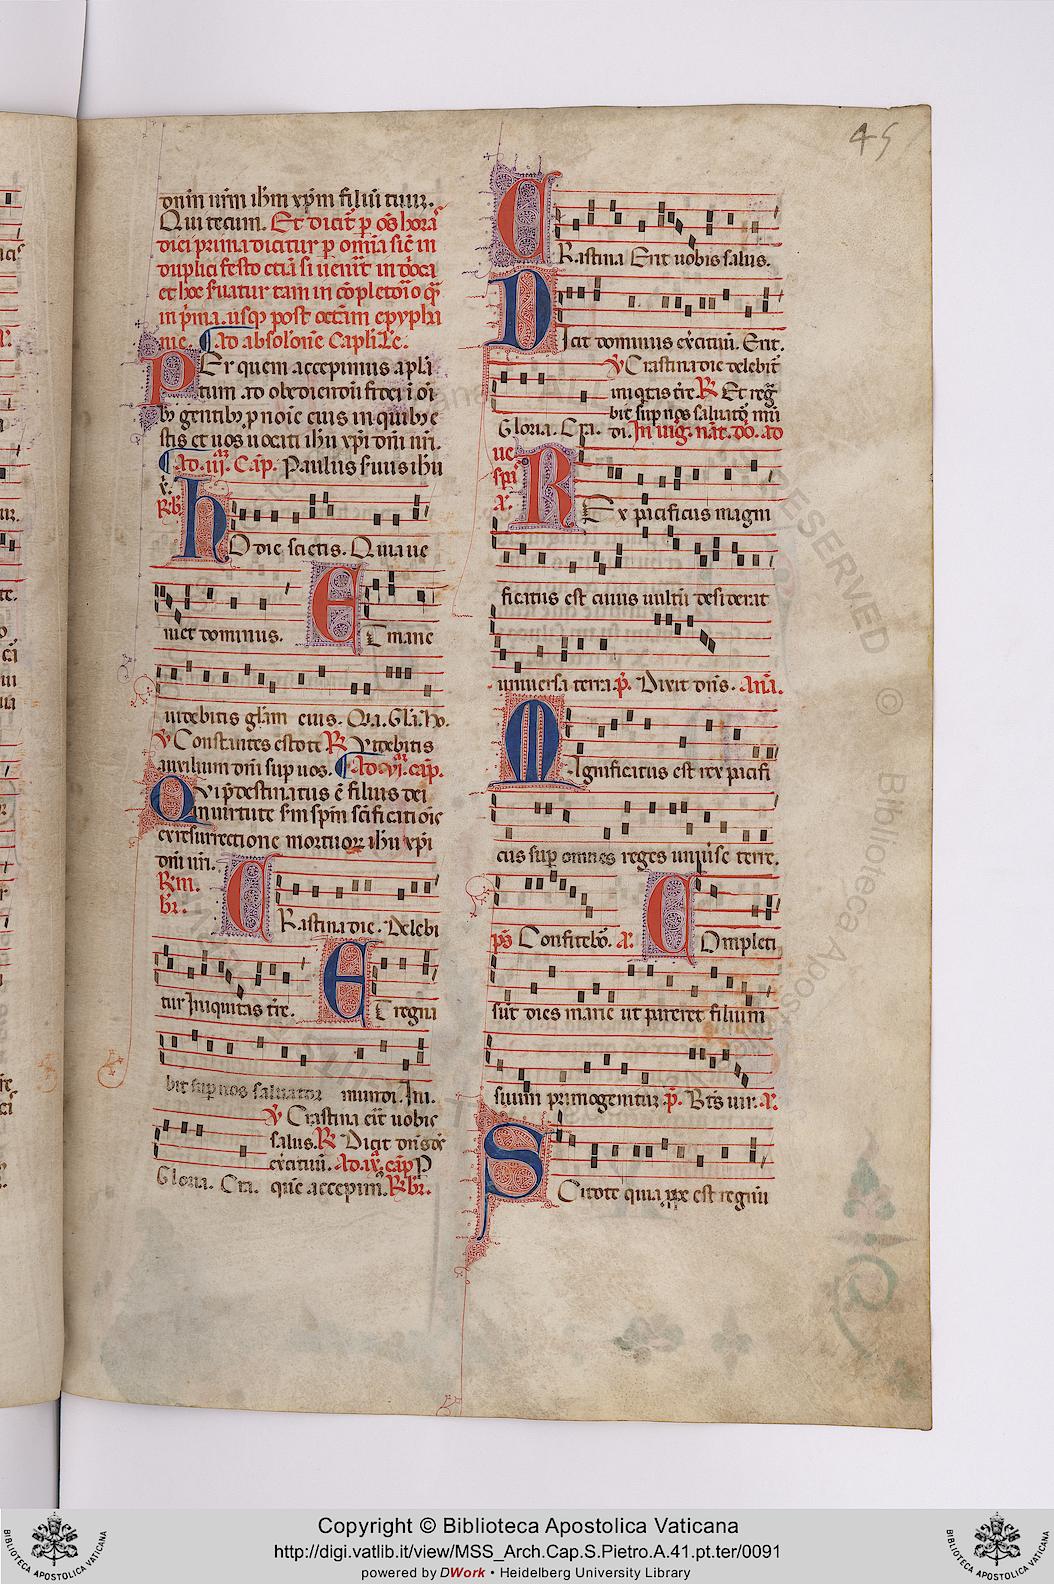 45
dnm nrm ihm xpm filiu tuuz.
Qui tecum. Et dicit p os hora
dici prima dicitur p omia sic in
duplici festo etia si uenerit in dnica
et hoc seruatur tam in completorio q
in prima. usq post octam epypha
nie. Ad absolone Capli. Le.
Per quem accepimus apli
tum. ad obediendu fidei i oi
b gentib p noie eius in quib e
stis et uos uocati ihu xpi dni nri.
Ad. iii. Cap. Paulus seruus ihu
x.
Rb. Hodie scietis. Quia ue
niet dominus. Et mane
uidebitis glam eius. Q.a. Gla. Ho.
V Constantes estote R Videbitis
auxilium dni sup uos. Ad. vi. cap.
Qui pdestinatus e filius dei
in uirtute sm spm scificatiois
ex resurrectione mortuoz ihu xpi
dni nri.
R m. Crastina die. Delebi
br.
tur Iniquitas tre. Et regna
bit sup nos saluator mundi. Ini.
V Crastina erit uobis
salus. R Dicit dns de
exercituu. Ad. ix. cap P
Gloria. Cra. que accepim. R br.
Crastina Erit uobis salus.
Dicit dominus exercituu. Erit.
V Crastina die delebit
iniquitas tre R Et reg
bit sup nos saluator mu
Gloria. Cra. di. In uig. nat. do. ad
ue
spas
a. Rex pacificus magni
ficatus est cuius uultu desiderat
uniuersa terra. p. Dixit dns. Ana.
Magnificatus est rex pacifi
cus sup omnes reges uniuise terre.
ps Confitebor. a. Completi
sut dies marie ut pareret filium
suum primogenituz p. Bts uir. a.
Scitote quia ppe est regnu
Copyright © Biblioteca Apostolica Vaticana
http://digi.vatlib.it/view/MSS_Arch.Cap.S.Pietro.A.41.pt.ter/0091
powered by DWork • Heidelberg University Library
BIBLIOTECA APOSTOLICA VATICANA
BIBLIOTECA APOSTOLICA VATICANA